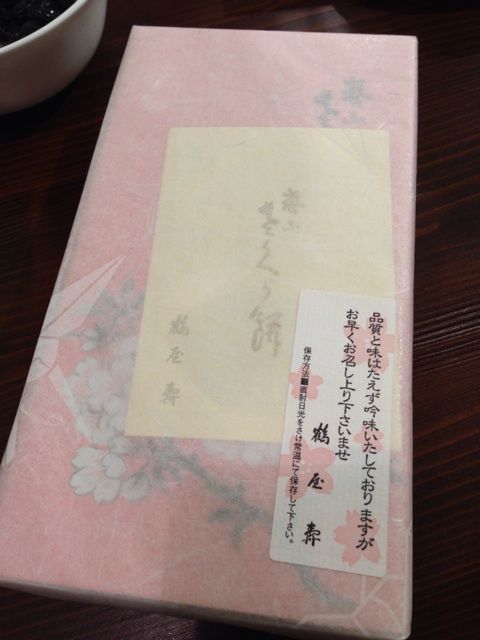 嵐山
さくら餅
鶴屋寿
品質と味はたえず吟味いたしておりますが
お早くお召し上り下さいませ
鶴屋寿
保存方法■直射日光をさけ常温にて保存して下さい。